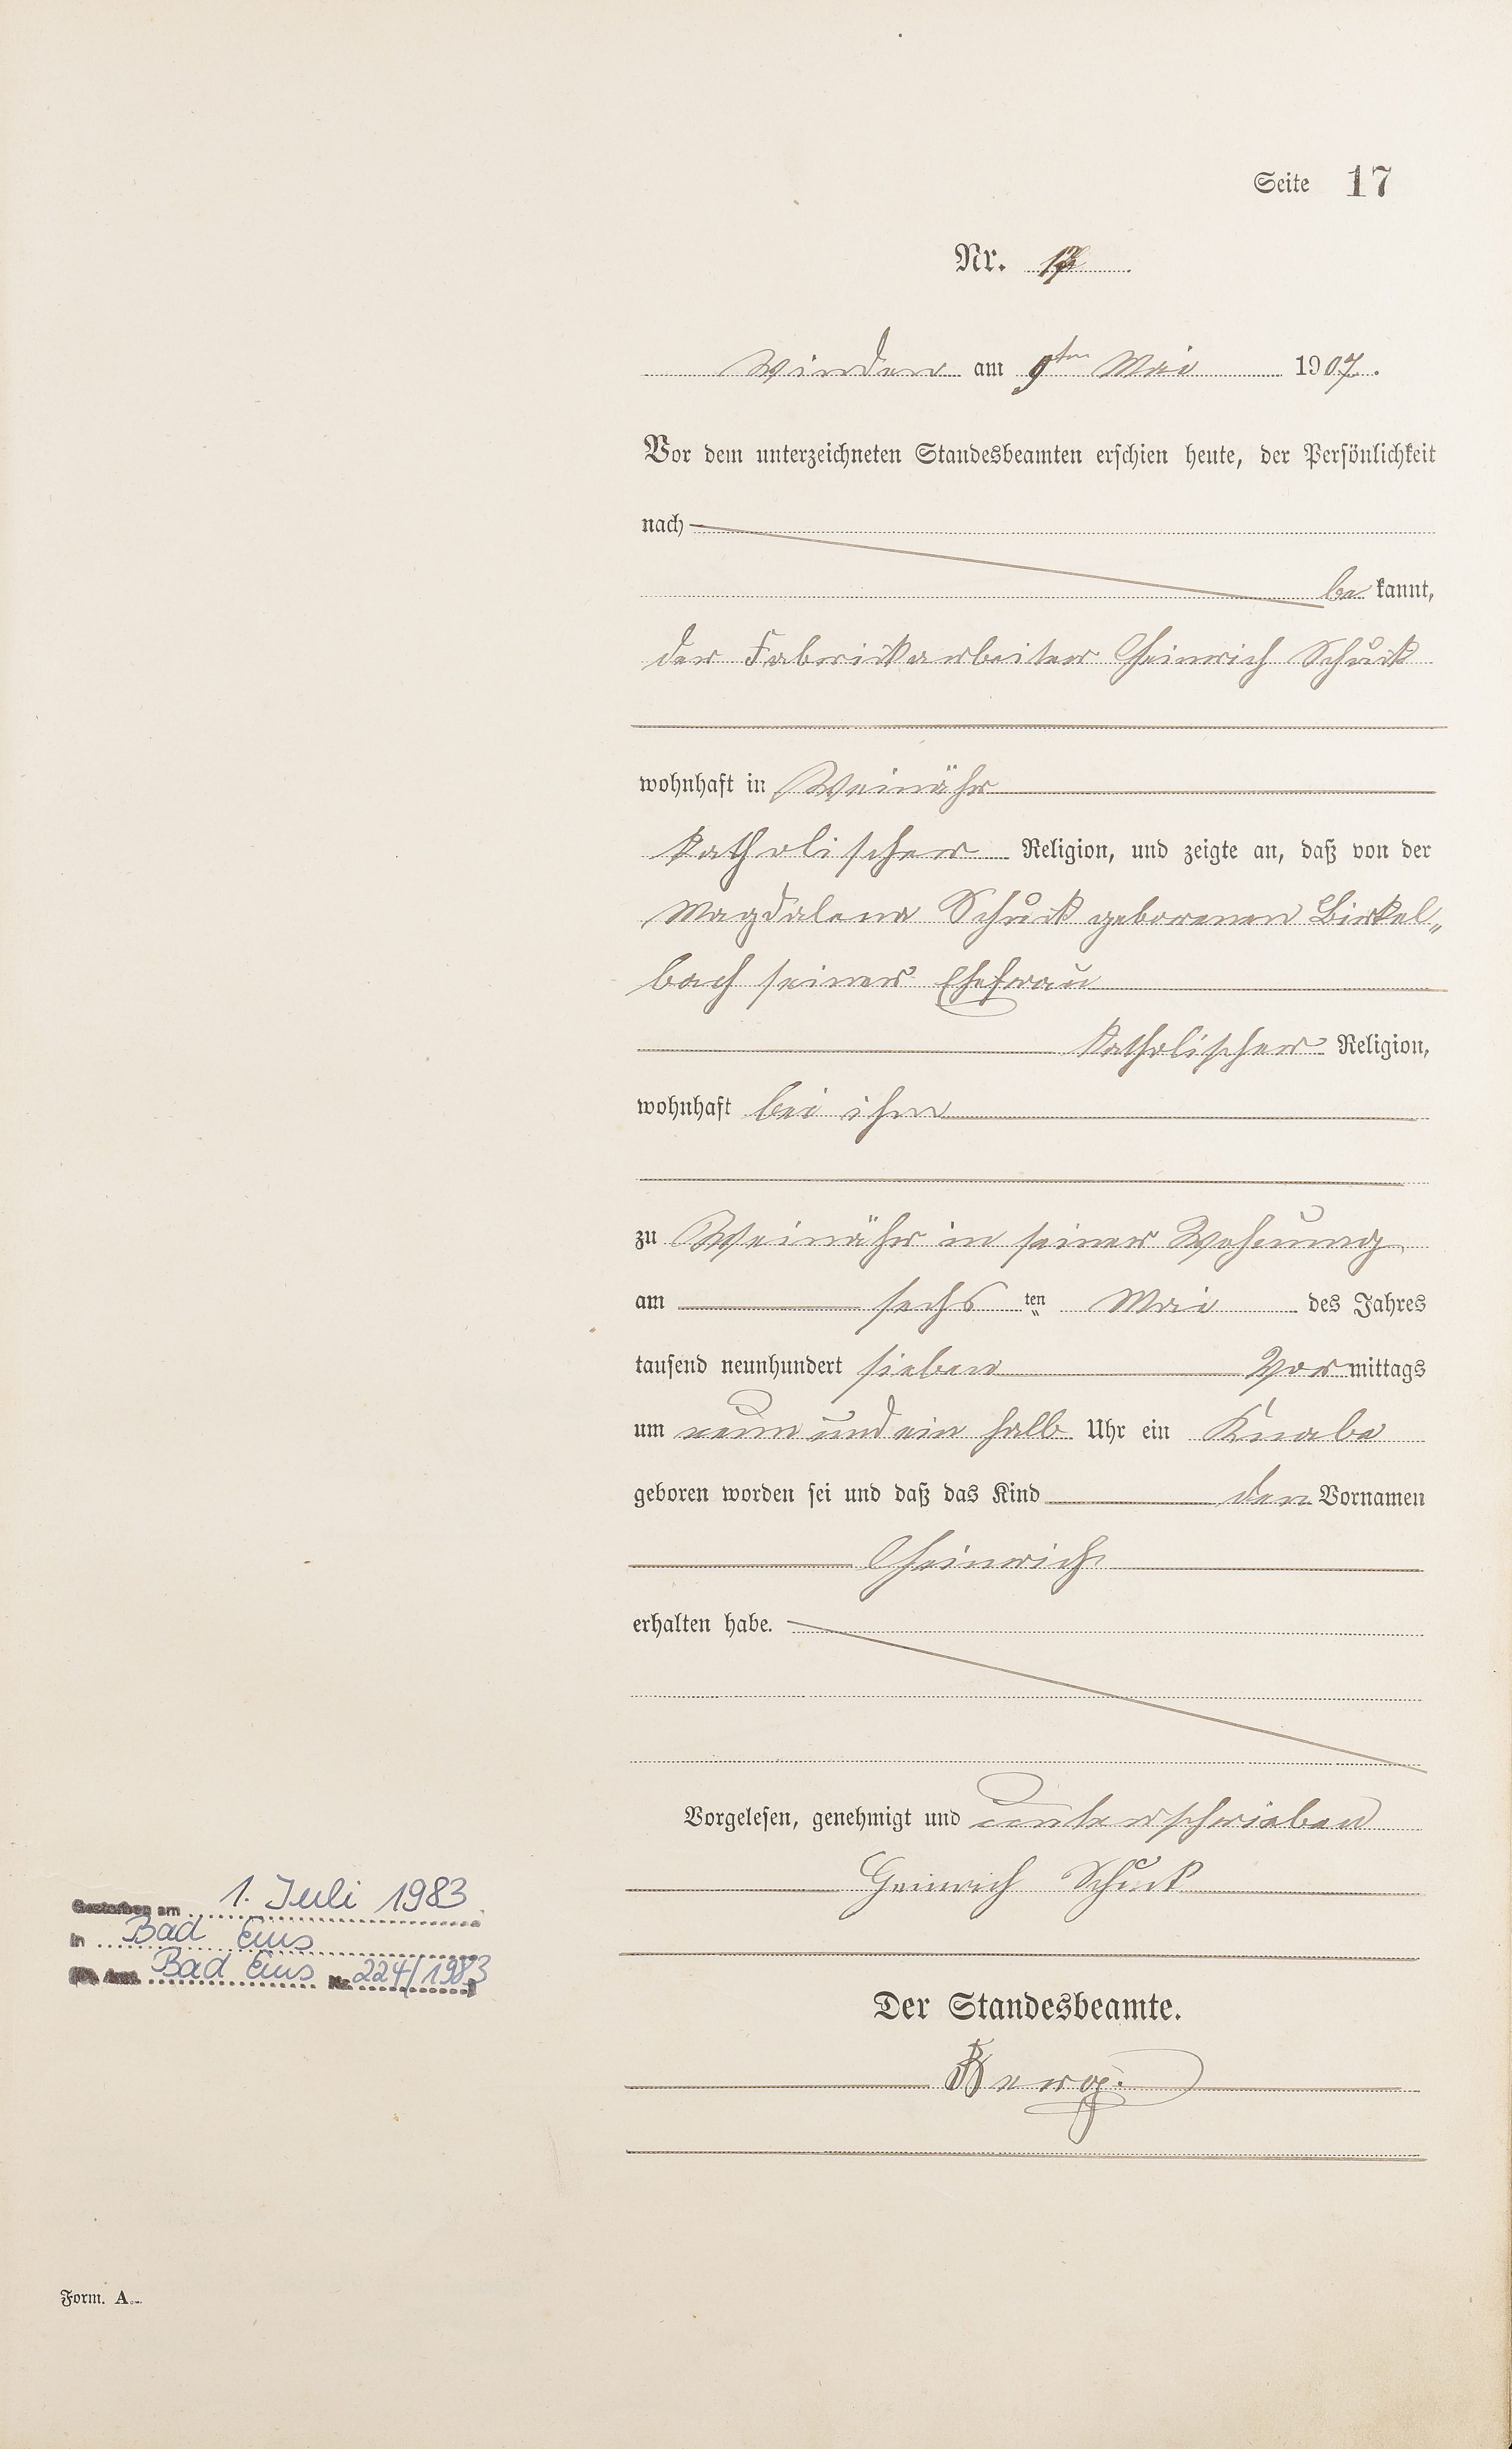 Seite 17
Nr. 17
Winden am 9ten Mai 1907.
Vor dem unterzeichneten Standesbeamten erschien heute, der Persönlichkeit
nach
be kannt,
der Fabrikarbeiter Heinrich Schuck
wohnhaft in Weinähr
katholischer Religion, und zeigte an, daß von der
Magdalena Schuck geborenen Birkel„
bach seiner Ehefrau
katholischer Religion,
wohnhaft bei ihm
zu Weinähr in seiner Wohnung
am sechs ten Mai des Jahres
tausend neunhundert sieben Vor mittags
um neun und ein halb Uhr ein Knabe
geboren worden sei und daß das Kind den Vornamen
Heinrich
erhalten habe.
Vorgelesen, genehmigt und unterschrieben
Heinrich Schuck
Gestorben am 1. Juli 1983
in Bad Ems
Bad Ems Nr. 224/1983
Der Standesbeamte.
Form. A.